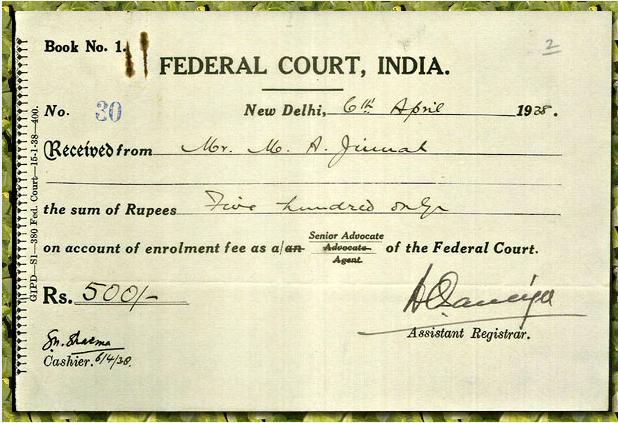 Book No. 1.
2
FEDERAL COURT, INDIA.
No. 30 New Delhi, 6th April 1938.
Received from Mr. M. A. Jinnah
the sum of Rupees Five hundred only
on account of enrolment fee as a/an Senior Advocate Advocate Agent of the Federal Court.
Rs. 500/-
Assistant Registrar.
Sharma
Cashier. 6/4/38.
GIPD—S1—380 Fed. Court—15-1-38—400.